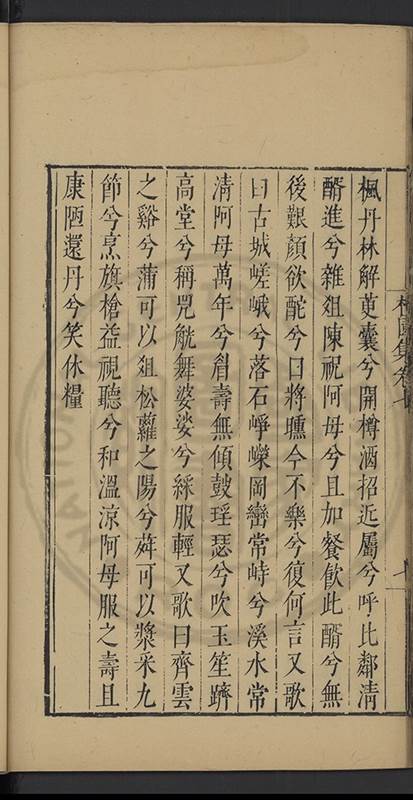 楓丹林解萸囊兮開樽酒招近屬兮呼比鄰清
酤進兮雜俎陳祝阿母兮且加餐飲此酤兮無
後艱顏欲酡兮日將曛今不樂兮復何言又歌
曰古城嵯峨兮落石崢嶸岡巒常峙兮溪水常
清阿母萬年兮眉壽無傾鼓瑤瑟兮吹玉笙躋
高堂兮稱兕觥舞婆娑兮綵服輕又歌曰齊雲
之谿兮蒲可以俎松蘿之陽兮荈可以漿采九
節兮烹旗槍益視聽兮和溫涼阿母服之壽且
康陋還丹兮笑休糧
集卷七